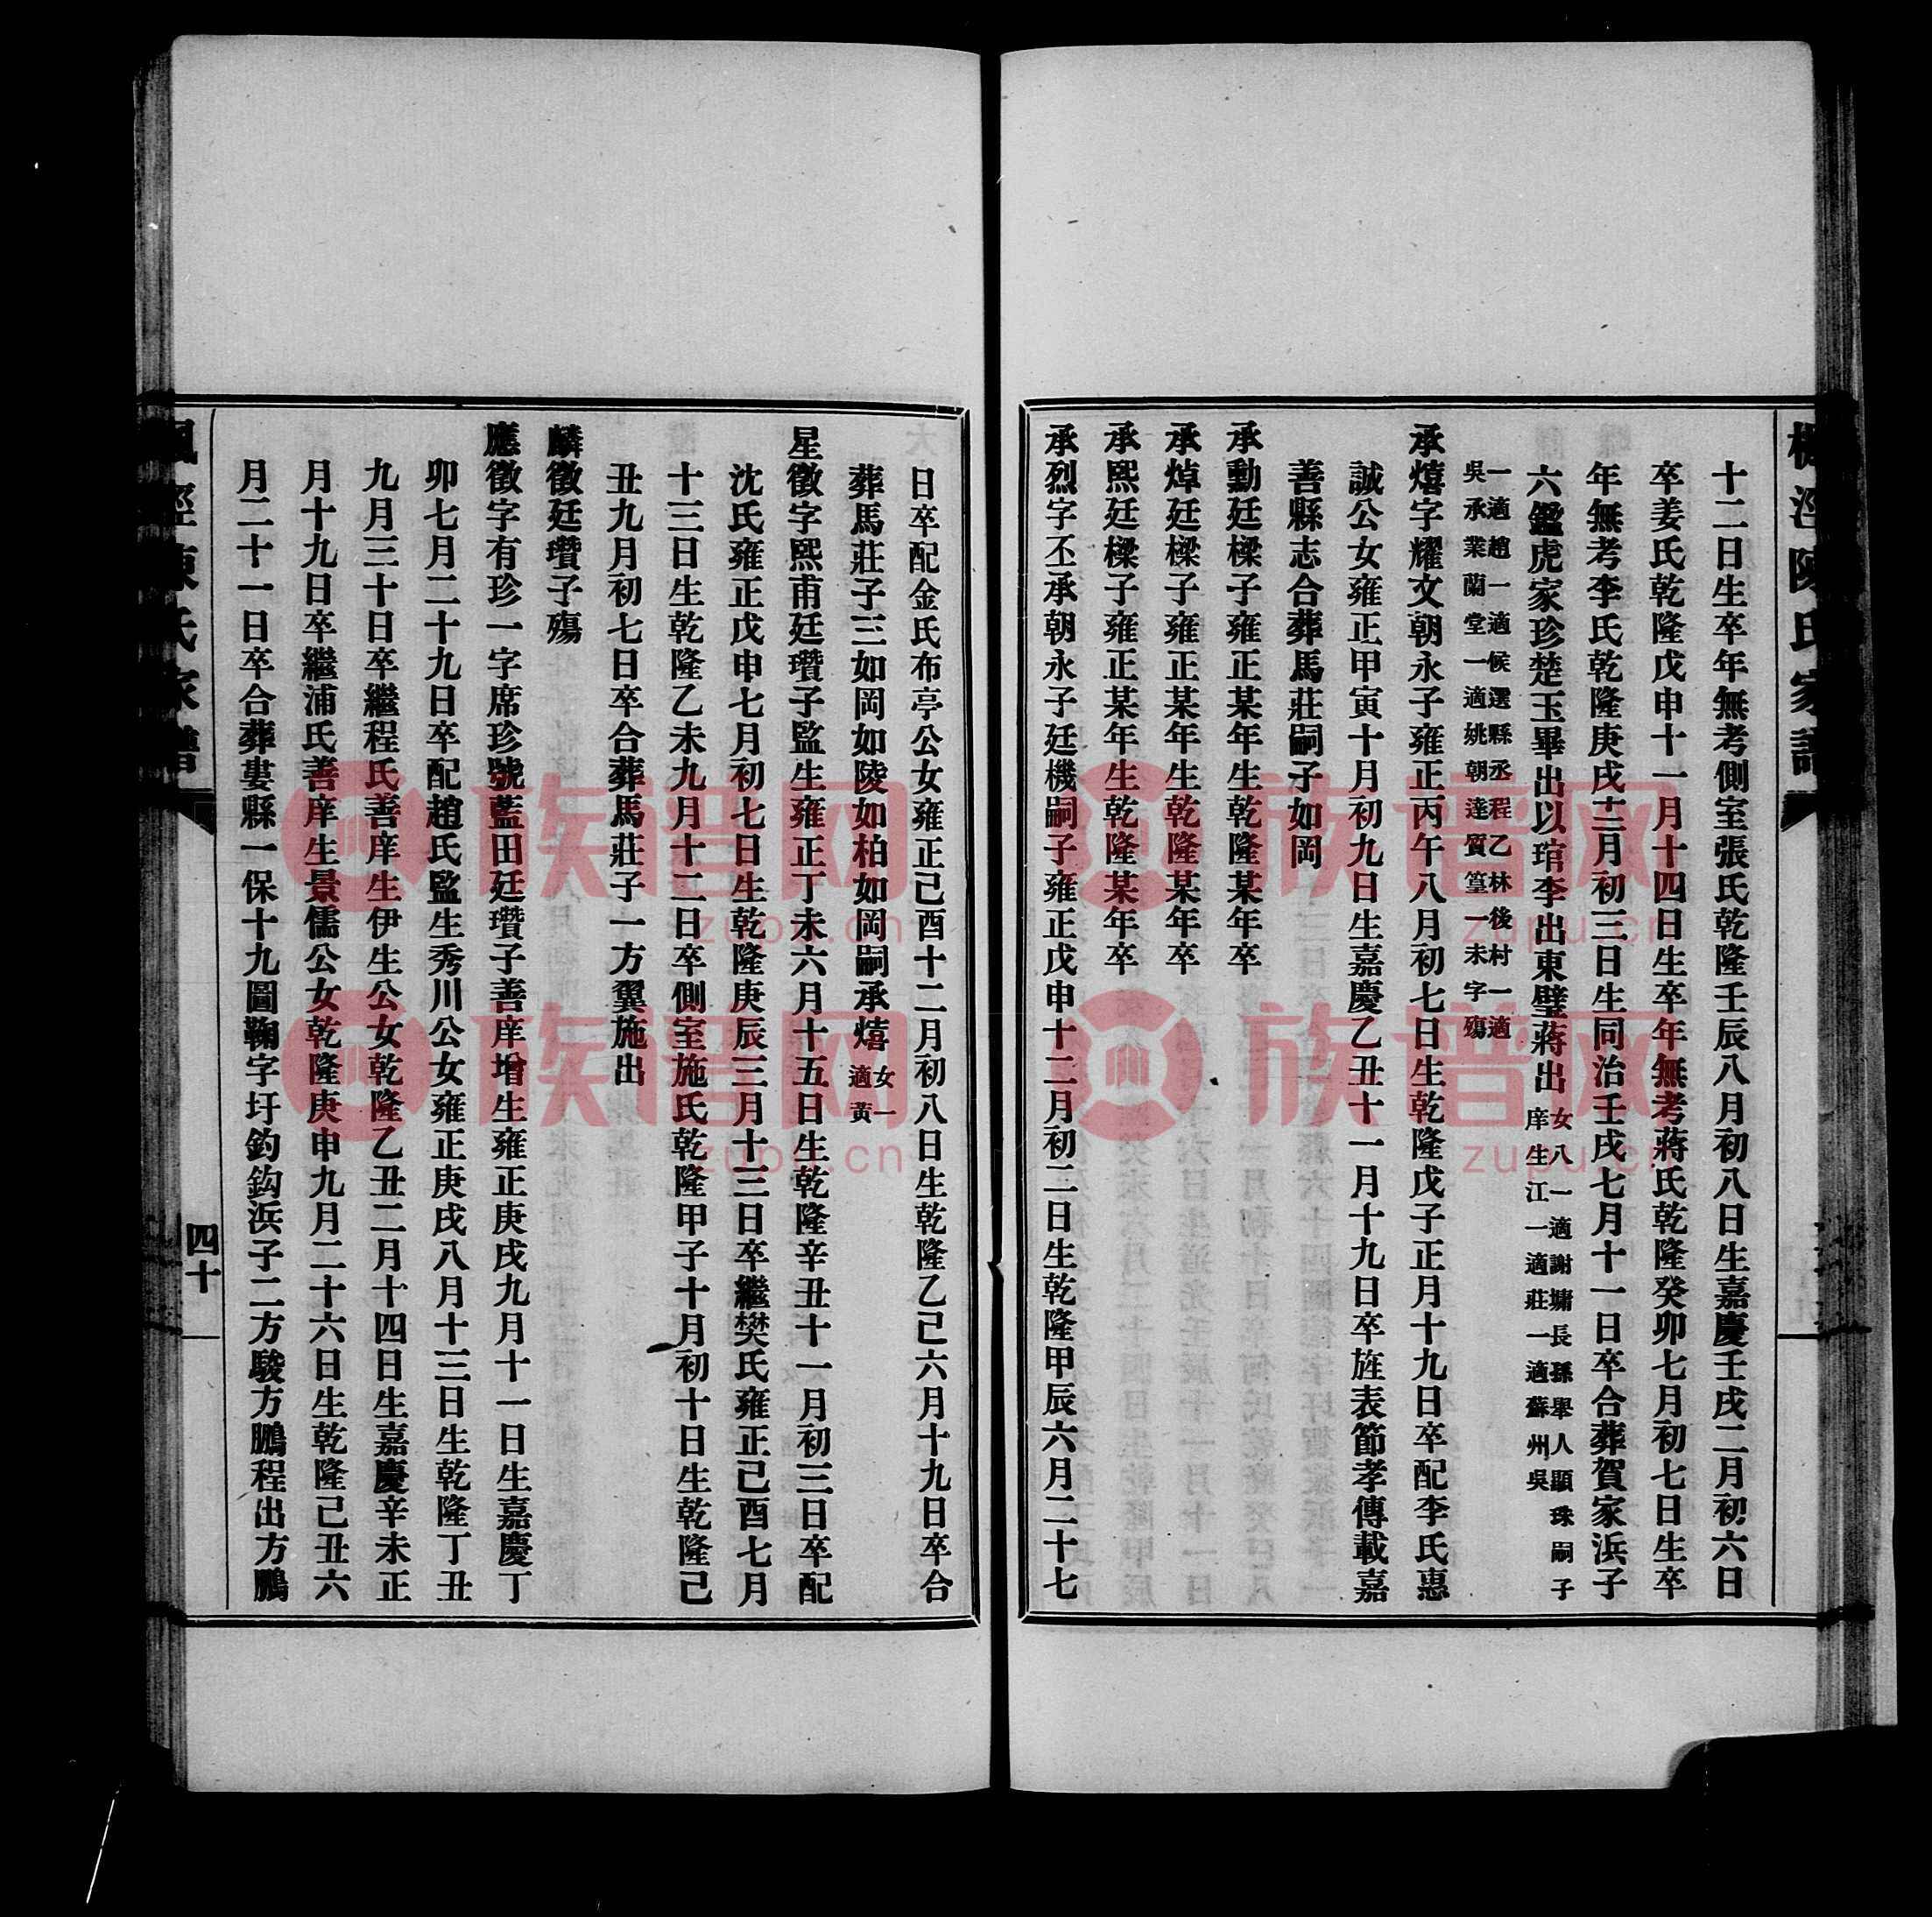 楓涇陳氏家譜
十二日生卒年無考側室張氏乾隆壬辰八月初八日生嘉慶壬戌二月初六日
卒姜氏乾隆戊申十一月十四日生卒年無考蔣氏乾隆癸卯七月初七日生卒
年無考李氏乾隆庚戌十二月初三日生同治壬戌七月十一日卒合葬賀家浜子
六鑑虎家珍楚玉畢出以琯李出東璧蔣出
女八一適謝墉長孫舉人顯珠嗣子
庠生江一適莊一適蘇州吳
一適趙一適候選縣丞程乙林後村一適
吳承業蘭堂一適姚朝達質篁一未字殤
承熺字耀文朝永子雍正丙午八月初七日生乾隆戊子正月十九日卒配李氏惠
誠公女雍正甲寅十月初九日生嘉慶乙丑十一月十九日卒旌表節孝傳載嘉
善縣志合葬馬莊嗣子如岡
承勳廷樑子雍正某年生乾隆某年卒
承焯廷樑子雍正某年生乾隆某年卒
承熙廷樑子雍正某年生乾隆某年卒
承烈字丕承朝永子廷機嗣子雍正戊申十二月初二日生乾隆甲辰六月二十七
日卒配金氏布亭公女雍正己酉十二月初八日生乾隆乙己六月十九日卒合
葬馬莊子三如岡如陵如柏如岡嗣承熺
女一
適黃
星徵字熙甫廷瓚子監生雍正丁未六月十五日生乾隆辛丑十一月初三日卒配
沈氏雍正戊申七月初七日生乾隆庚辰三月十三日卒繼樊氏雍正己酉七月
十三日生乾隆乙未九月十二日卒側室施氏乾隆甲子十月初十日生乾隆己
丑九月初七日卒合葬馬莊子一方翼施出
麟徵廷瓚子殤
應徵字有珍一字席珍號藍田廷瓚子善庠增生雍正庚戌九月十一日生嘉慶丁
卯七月二十九日卒配趙氏監生秀川公女雍正庚戌八月十三日生乾隆丁丑
九月三十日卒繼程氏善庠生伊生公女乾隆乙丑二月十四日生嘉慶辛未正
月十九日卒繼浦氏善庠生景儒公女乾隆庚申九月二十六日生乾隆己丑六
月二十一日卒合葬婁縣一保十九圖鞠字圩鈎鈎浜子二方駿方鵬程出方鵬
楓涇陳氏家譜
四十
族谱网
zupu.cn
族谱网
zupu.cn
族谱网
zupu.cn
族谱网
zupu.cn